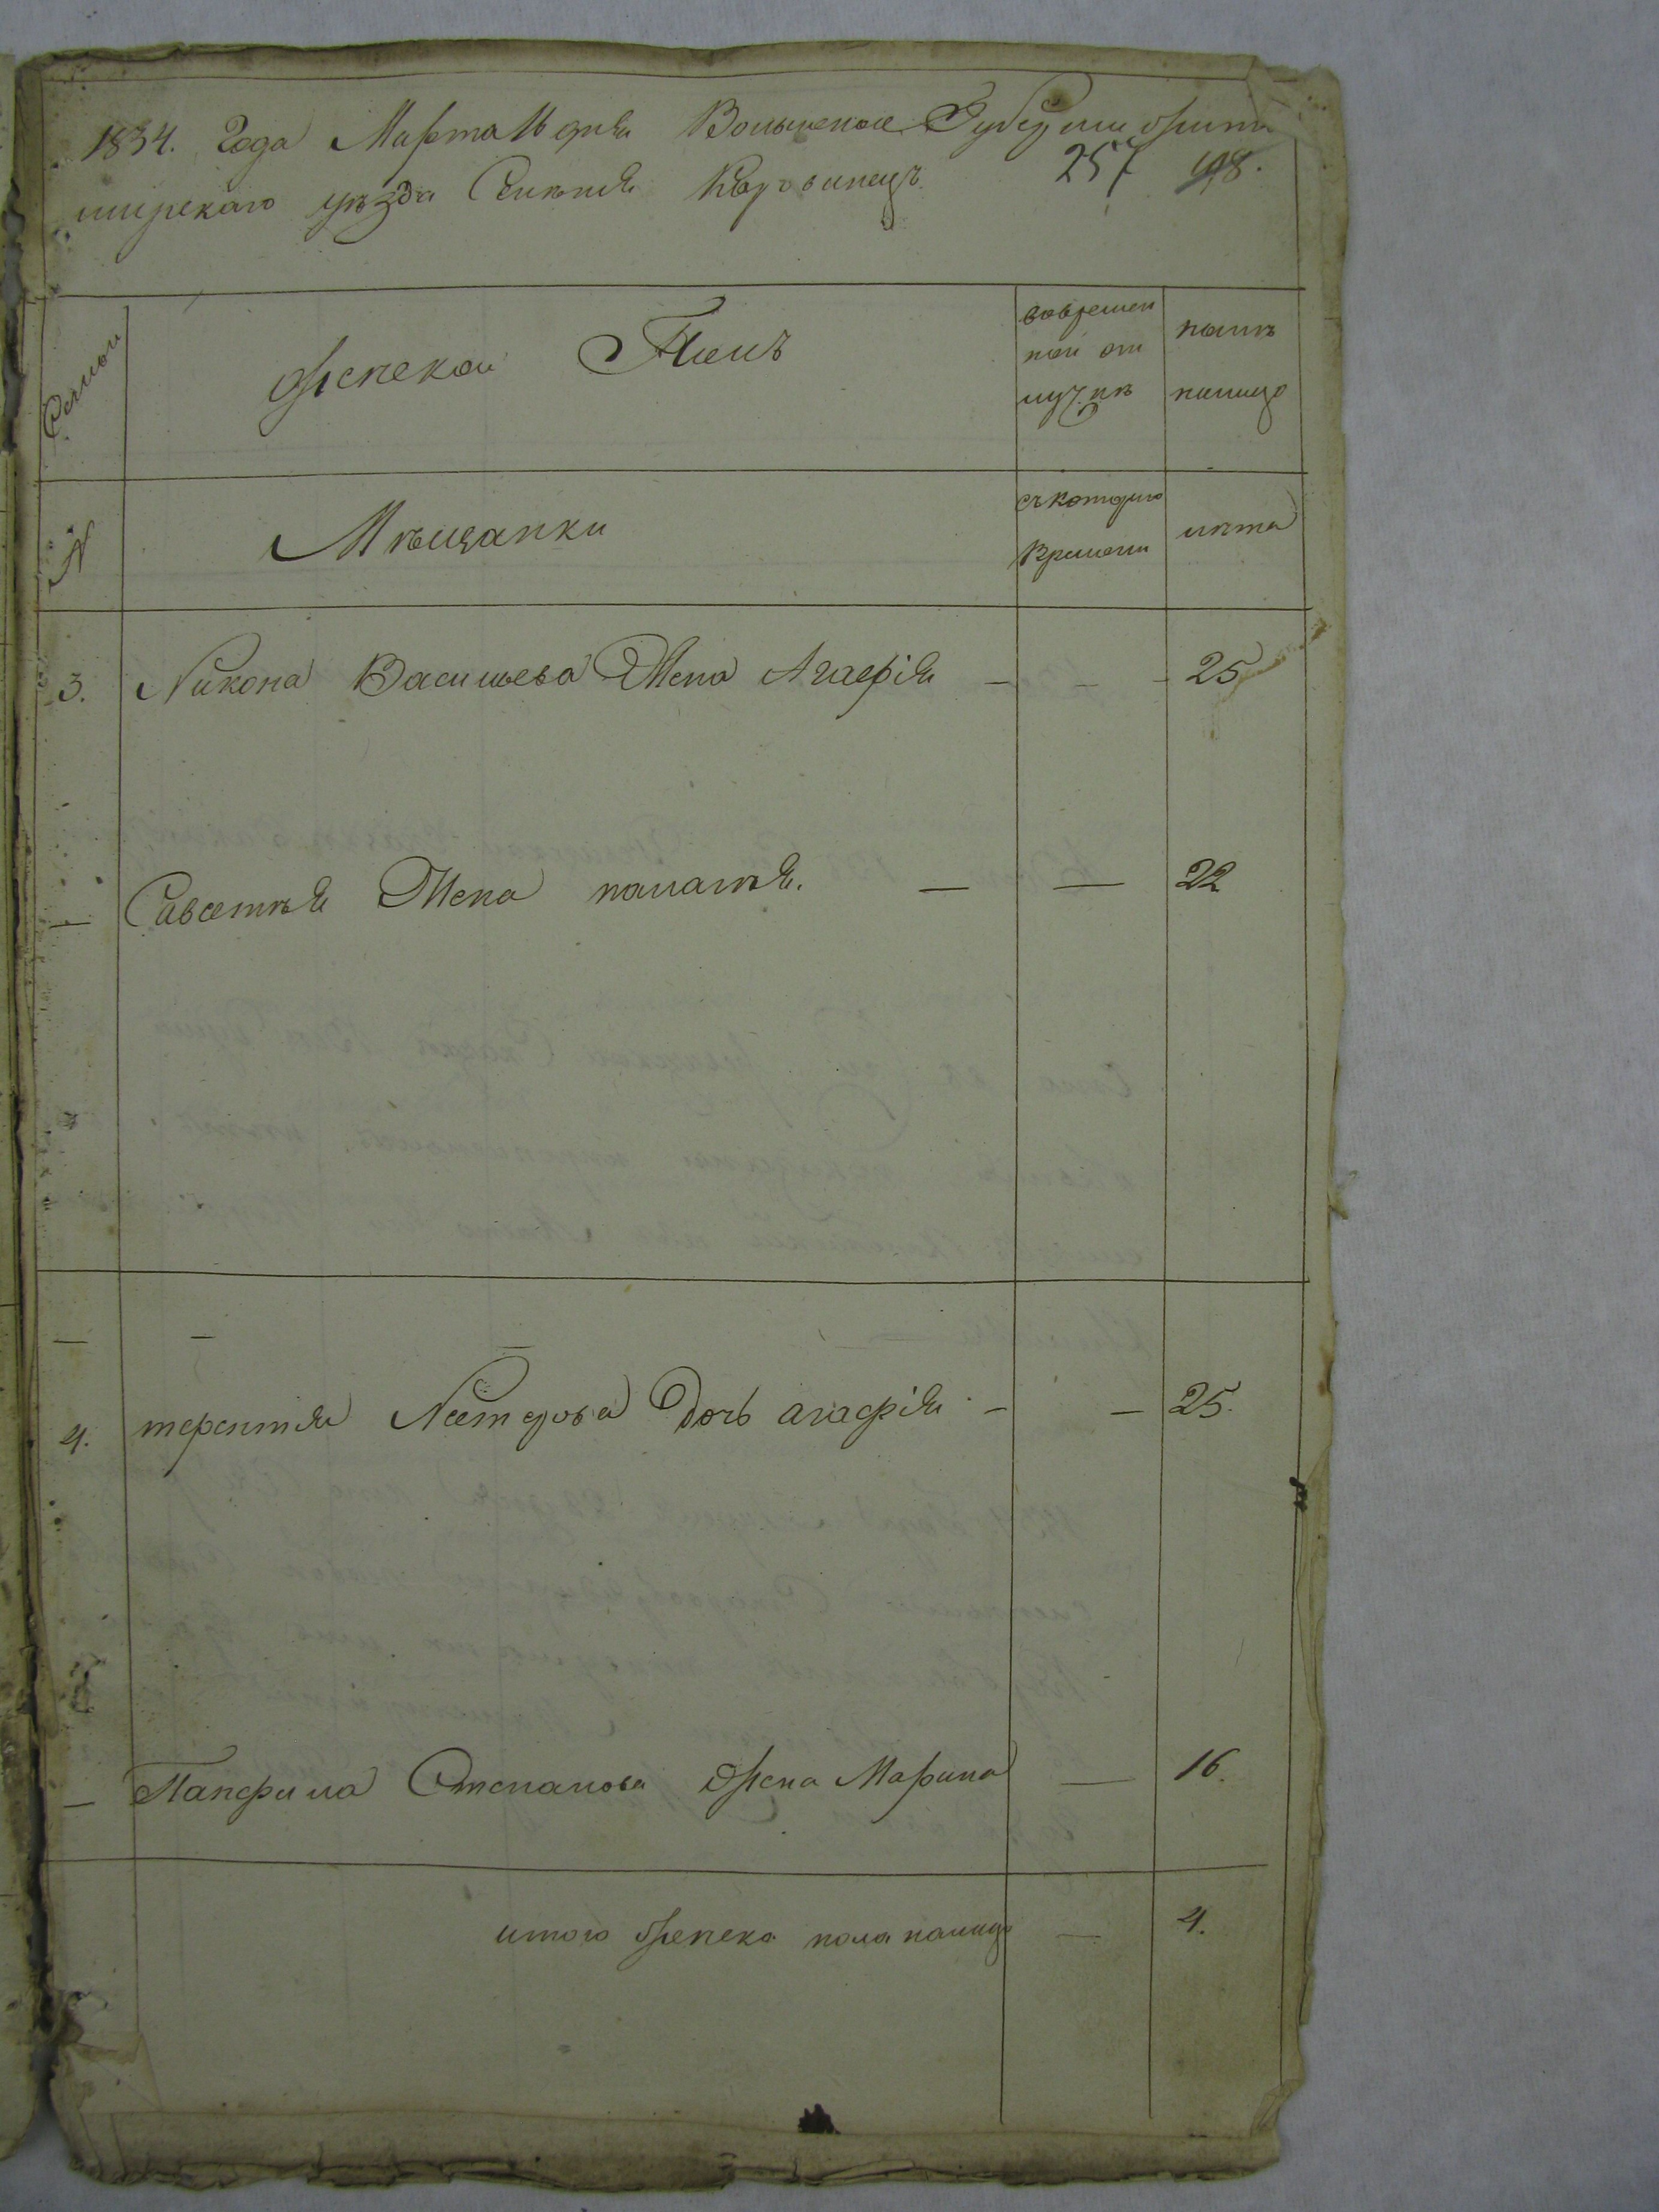 1834. Года Марта 16 дня Волынское Губернии Жито
мирскаго уезда Селения
257 198.
Семьи
женской Полъ
вовремен
ной от
лучке
ныне
налицо
N
Мещанки
съ которого
времени
лета
3. Никона Васильева Жена Агафiя - - - 25
— Савостея Жена палагея. — — 22
— — —
4. терентея Нестерова Дочь агафiя - — 25.
— Панфила Степанова жена Марина — 16.
итого женска пола налицо — 4.